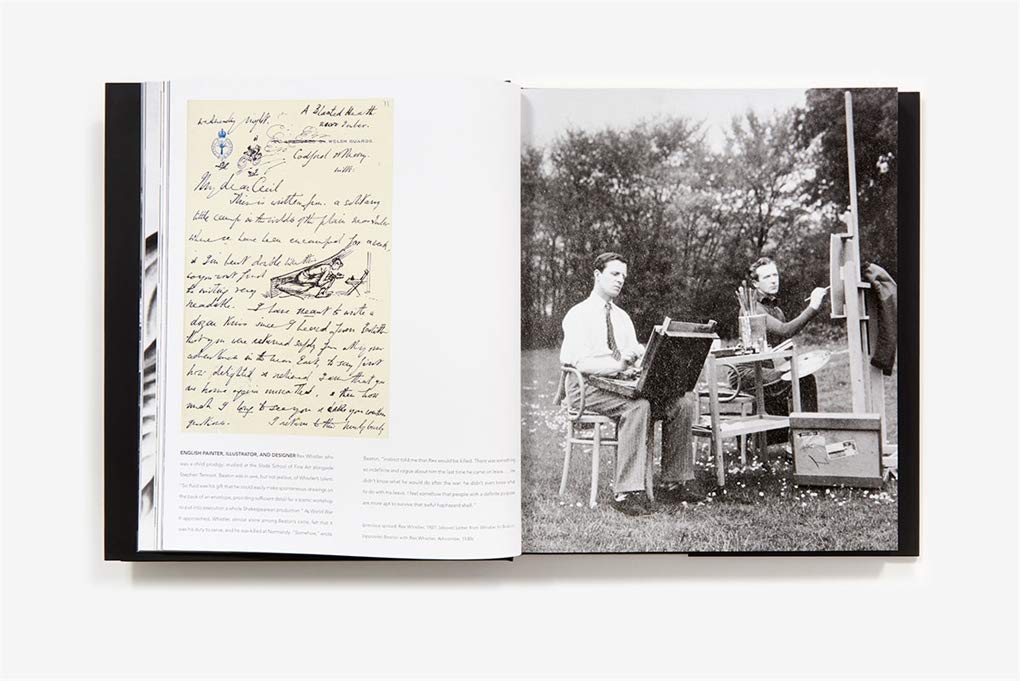 11
A Blasted Heath
Wednesday night.
near Imber.
WELSH GUARDS.
Codford St Mary.
Wilts:
My dear Cecil
This is written from a solitary
little camp in the middle of the plain near Imber
where we have been encamped for a week,
& I'm bent double
so you won't find
the writing very
readable. I have meant to write a
dozen times since I heard from Edith
that you were returned safely from all your
adventures in the near East, to say first
how delighted & relieved I am that you
are home again unscathed, & then how
much I long to see you &
I return to the
ENGLISH PAINTER, ILLUSTRATOR, AND DESIGNER Rex Whistler, who
was a child prodigy, studied at the Slade School of Fine Art alongside
Stephen Tennant. Beaton was in awe, but not jealous, of Whistler's talent:
"So fluid was his gift that he could easily make spontaneous drawings on
the back of an envelope, providing sufficient detail for a scenic workshop
to put into execution a whole Shakespearean production." As World War
II approached, Whistler, almost alone among Beaton's circle, felt that it
was his duty to serve, and he was killed at Normandy. "Somehow," wrote
Beaton, "instinct told me that Rex would be killed. There was something
so indefinite and vague about him the last time he came on leave. . . . He
didn't know what he would do after the war: he didn't even know what
to do with his leave. I feel somehow that people with a definite purpose
are more apt to survive that awful haphazard shell."
Rex Whistler, 1927; Letter from Whistler to Beaton;
Beaton with Rex Whistler, Ashcombe, 1930s